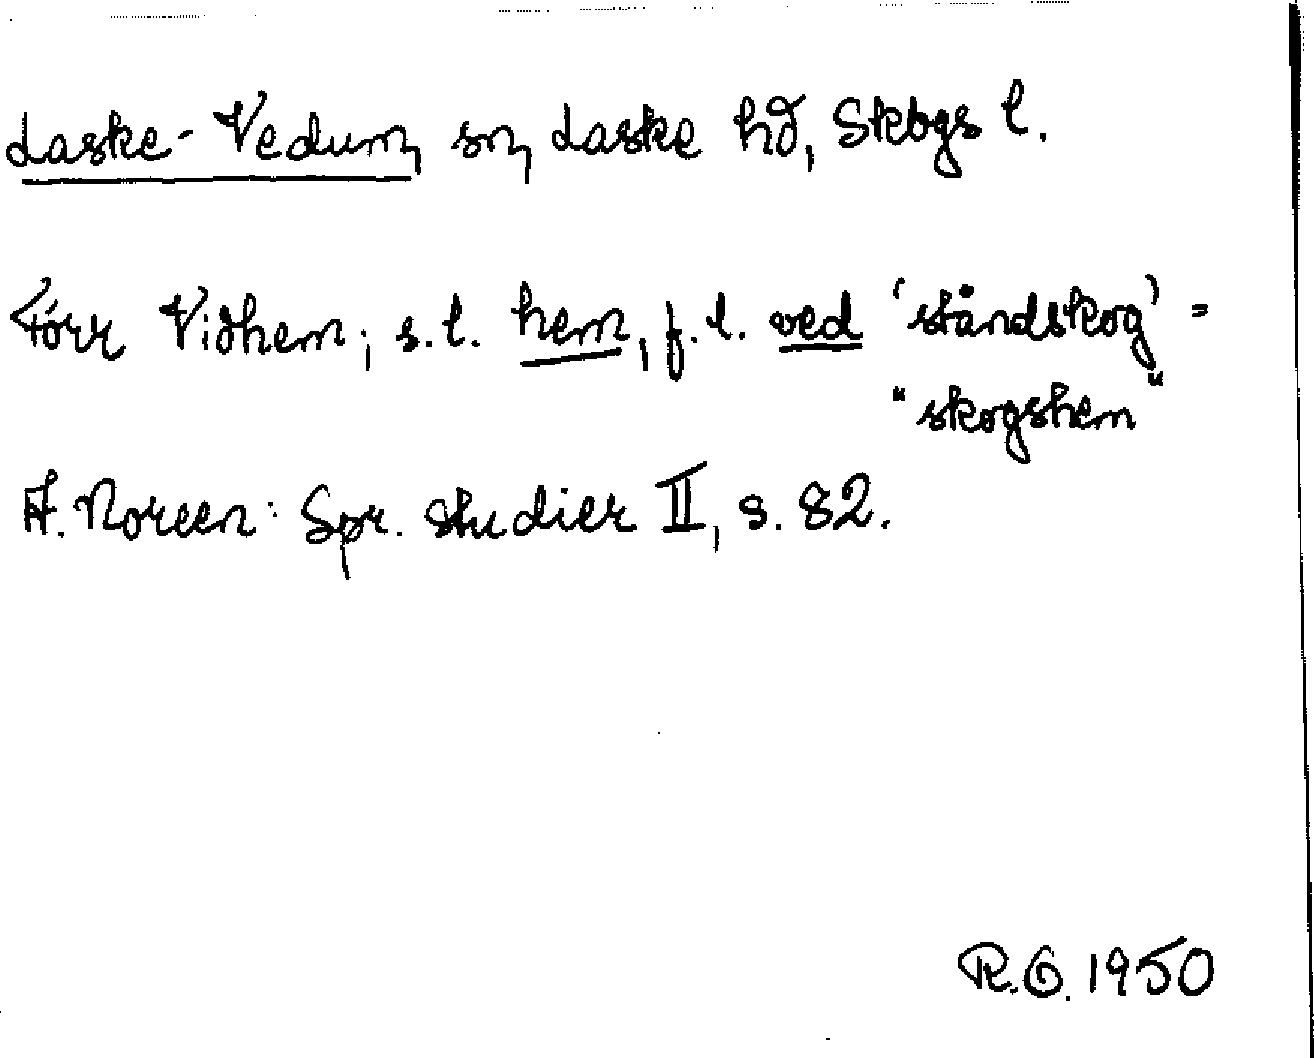 Laske-Vedum, sn, Laske hd, Skbgs l.
Förr Viðhem; s.l. hem, f.l. ved 'ståndskog' =
"skogshem"
A. Noreen: Spr. studier II, s. 82.
R.G. 1950